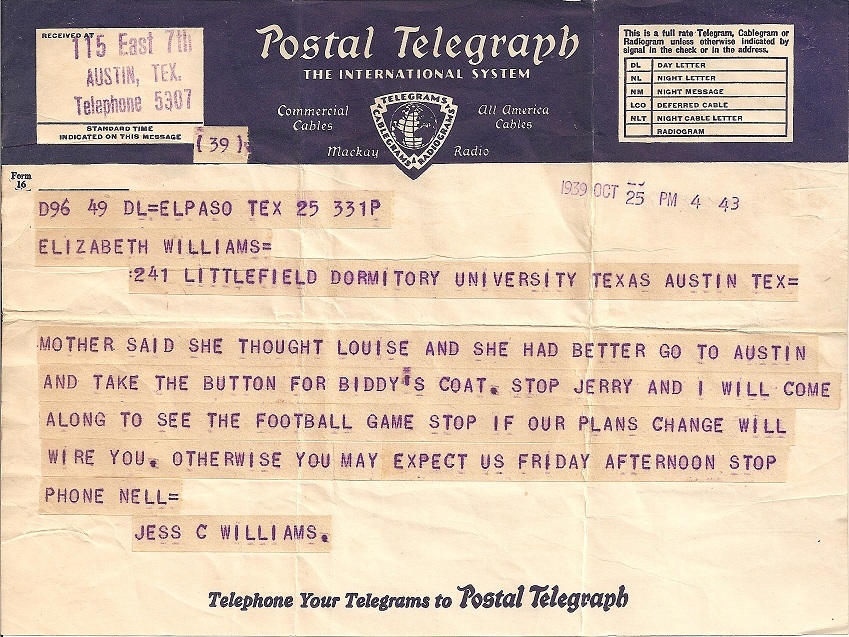 RECEIVED AT
115 East 7th
AUSTIN, TEX.
Telephone 5307
STANDARD TIME
INDICATED ON THIS MESSAGE
(39)
Postal Telegraph
THE INTERNATIONAL SYSTEM
Commercial Cables
All America Cables
Mackay Radio
TELEGRAMS
CABLEGRAMS
RADIOGRAMS
This is a full rate Telegram, Cablegram or
Radiogram unless otherwise indicated by
signal in the check or in the address.
DL DAY LETTER
NL NIGHT LETTER
NM NIGHT MESSAGE
LCO DEFERRED CABLE
NLT NIGHT CABLE LETTER
RADIOGRAM
Form
16
1939 OCT 25 PM 4 43
D96 49 DL=ELPASO TEX 25 331P
ELIZABETH WILLIAMS=
:241 LITTLEFIELD DORMITORY UNIVERSITY TEXAS AUSTIN TEX=
MOTHER SAID SHE THOUGHT LOUISE AND SHE HAD BETTER GO TO AUSTIN
AND TAKE THE BUTTON FOR BIDDY'S COAT. STOP JERRY AND I WILL COME
ALONG TO SEE THE FOOTBALL GAME STOP IF OUR PLANS CHANGE WILL
WIRE YOU. OTHERWISE YOU MAY EXPECT US FRIDAY AFTERNOON STOP
PHONE NELL=
JESS C WILLIAMS.
Telephone Your Telegrams to Postal Telegraph